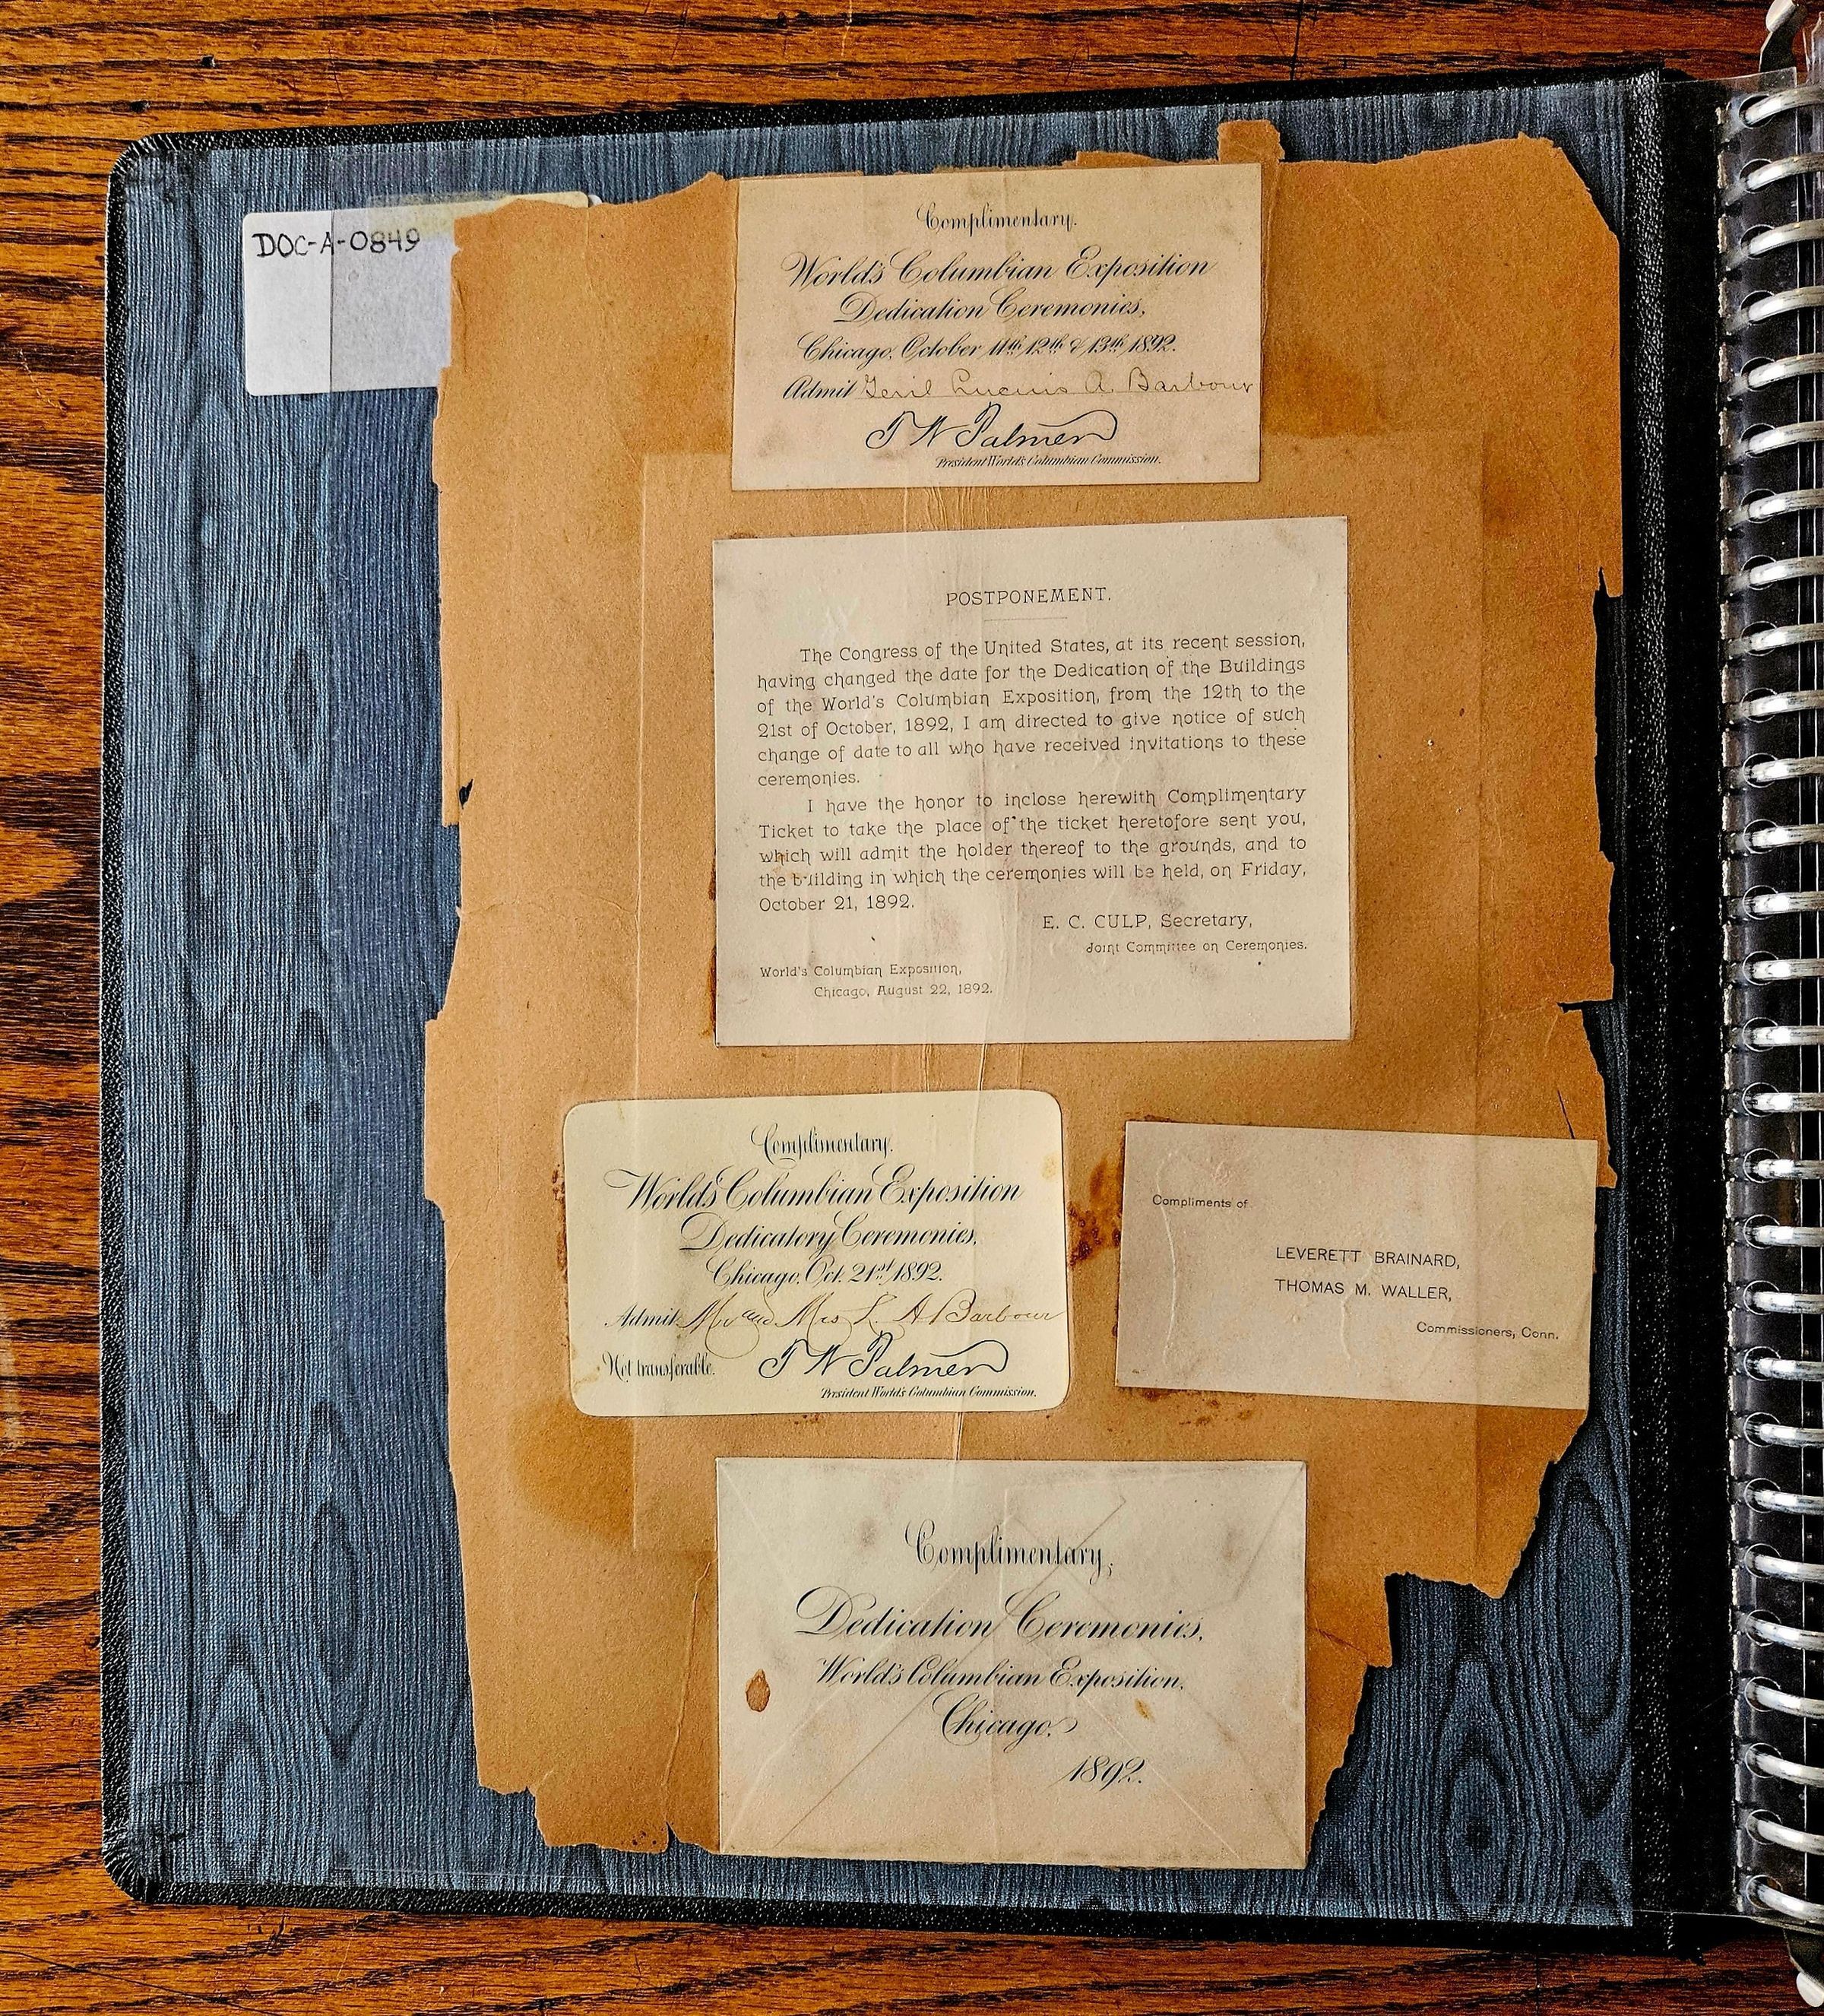 DOC-A-0849
Complimentary.
World's Columbian Exposition
Dedication Ceremonies,
Chicago, October 11th, 12th & 13th 1892.
Admit Genl Lucius A. Barbour
T W Palmer
President World's Columbian Commission.
POSTPONEMENT.
The Congress of the United States, at its recent session,
having changed the date for the Dedication of the Buildings
of the World's Columbian Exposition, from the 12th to the
21st of October, 1892, I am directed to give notice of such
change of date to all who have received invitations to these
ceremonies.
I have the honor to inclose herewith Complimentary
Ticket to take the place of the ticket heretofore sent you,
which will admit the holder thereof to the grounds, and to
the building in which the ceremonies will be held, on Friday,
October 21, 1892.
E. C. CULP, Secretary,
Joint Committee on Ceremonies.
World's Columbian Exposition,
Chicago, August 22, 1892.
Complimentary.
World's Columbian Exposition
Dedicatory Ceremonies,
Chicago, Oct. 21st 1892.
Admit Mr and Mrs L. A. Barbour
Not transferable.
T W Palmer
President World's Columbian Commission.
Compliments of
LEVERETT BRAINARD,
THOMAS M. WALLER,
Commissioners, Conn.
Complimentary,
Dedication Ceremonies,
World's Columbian Exposition,
Chicago.
1892.